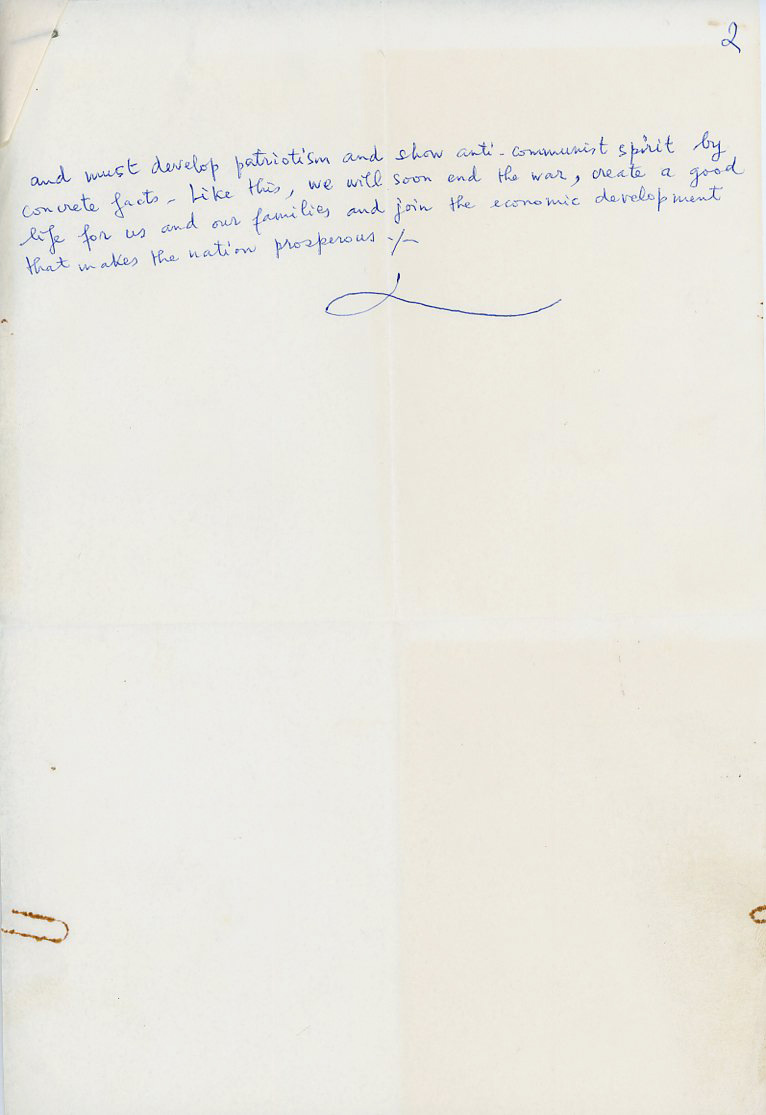 2
and must develop patriotism and show anti-communist spirit by
concrete facts - Like this, we will soon end the war, create a good
life for us and our families and join the economic development
that makes the nation prosperous ./-